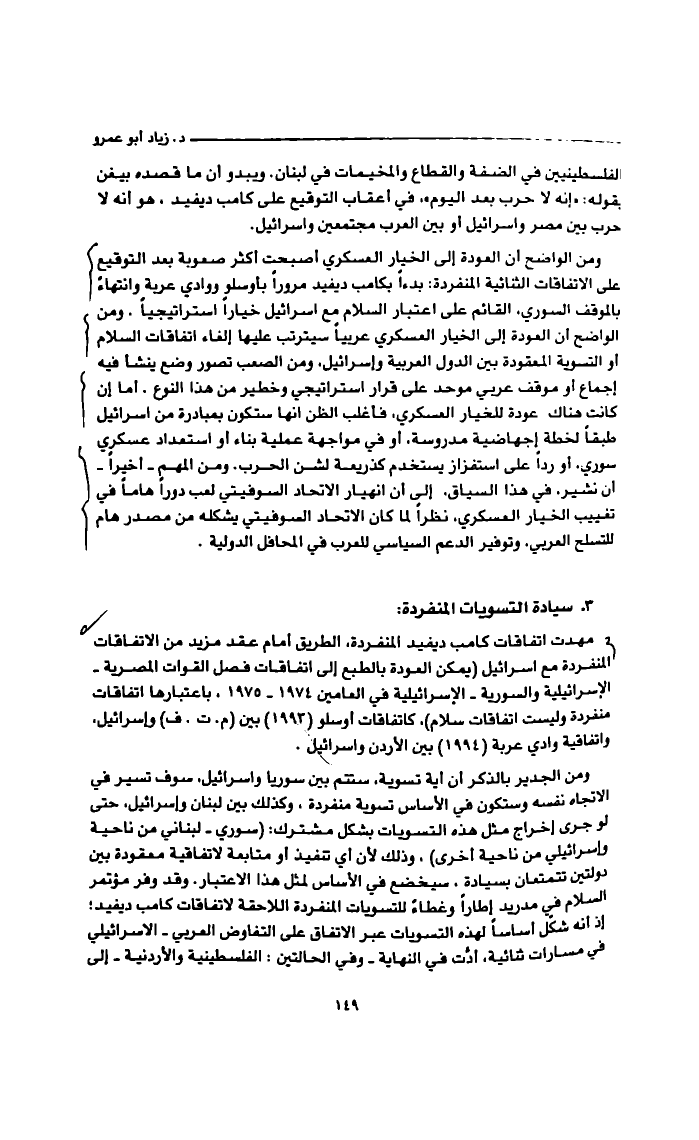 د. زياد أبو عمرو
الفلسطينيين في الضفة والقطاع والمخيمات في لبنان. ويبدو أن ما قصده بيغن
بقوله: «إنه لا حرب بعد اليوم»، في أعقاب التوقيع على كامب ديفيد ، هو أنه لا
حرب بين مصر واسرائيل أو بين العرب مجتمعين واسرائيل.
ومن الواضح أن العودة إلى الخيار العسكري أصبحت أكثر صعوبة بعد التوقيع
على الاتفاقات الثنائية المنفردة: بدءاً بكامب ديفيد مروراً بأوسلو ووادي عربة وانتهاءً
بالموقف السوري، القائم على اعتبار السلام مع اسرائيل خياراً استراتيجياً . ومن
الواضح أن العودة إلى الخيار العسكري عربياً سيترتب عليها إلغاء اتفاقات السلام
أو التسوية المعقودة بين الدول العربية وإسرائيل، ومن الصعب تصور وضع ينشأ فيه
إجماع أو موقف عربي موحد على قرار استراتيجي وخطير من هذا النوع . أما إن
كانت هناك عودة للخيار العسكري، فأغلب الظن انها ستكون بمبادرة من اسرائيل
طبقاً لخطة إجهاضية مدروسة، أو في مواجهة عملية بناء أو استعداد عسكري
سوري، أو رداً على استفزاز يستخدم كذريعة لشن الحرب. ومن المهم - أخيراً -
أن نشير، في هذا السياق، إلى أن انهيار الاتحاد السوفيتي لعب دوراً هاماً في
تغييب الخيار العسكري، نظراً لما كان الاتحاد السوفيتي يشكله من مصدر هام
للتسلح العربي، وتوفير الدعم السياسي للعرب في المحافل الدولية .
٣. سيادة التسويات المنفردة:
مهدت اتفاقات كامب ديفيد المنفردة، الطريق أمام عقد مزيد من الاتفاقات
المنفردة مع اسرائيل (يمكن العودة بالطبع إلى اتفاقات فصل القوات المصرية -
الإسرائيلية والسورية - الإسرائيلية في العامين ١٩٧٤ - ١٩٧٥ ، باعتبارها اتفاقات
منفردة وليست اتفاقات سلام)، كاتفاقات أوسلو (١٩٩٣) بين (م. ت . ف) وإسرائيل،
واتفاقية وادي عربة (١٩٩٤) بين الأردن واسرائيل .
ومن الجدير بالذكر أن أية تسوية، ستتم بين سوريا واسرائيل، سوف تسير في
الاتجاه نفسه وستكون في الأساس تسوية منفردة ، وكذلك بين لبنان وإسرائيل، حتى
لو جرى إخراج مثل هذه التسويات بشكل مشترك: (سوري - لبناني من ناحية
وإسرائيلي من ناحية أخرى) ، وذلك لأن أي تنفيذ أو متابعة لاتفاقية معقودة بين
دولتين تتمتعان بسيادة ، سيخضع في الأساس لمثل هذا الاعتبار. وقد وفر مؤتمر
السلام في مدريد إطاراً وغطاءً للتسويات المنفردة اللاحقة لاتفاقات كامب ديفيد؛
إذ أنه شكّل أساساً لهذه التسويات عبر الاتفاق على التفاوض العربي - الاسرائيلي
في مسارات ثنائية، أدّت في النهاية - وفي الحالتين : الفلسطينية والأردنية - إلى
١٤٩